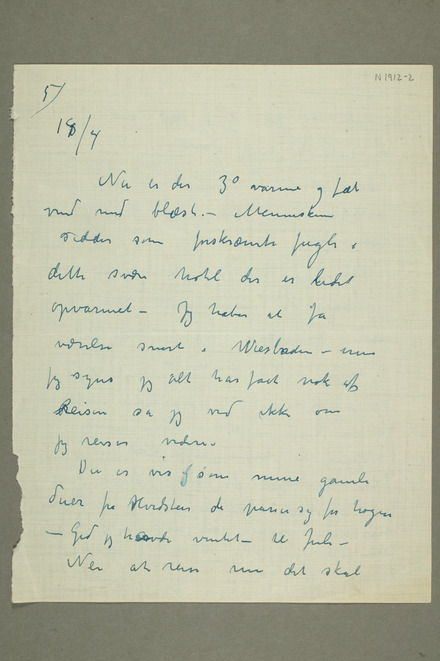 N 1912-2
5/
18/4
Nu er der 3° varme og tæt
vind med blæst. – Menneskene
sidder som forskræmte fugle i
dette svære hotel der er lidet
opvarmet – Jeg haaber at faa
værelse snart i Wiesbaden – men
jeg synes jeg alt har faat nok af
Reisen saa jeg ved ikke om
jeg reiser videre.
Du er vis som mine gamle
duer fra Hvidsten de parrer sig for
– Gid jeg havde ventet til Juli –
Nei at reise naar det skal